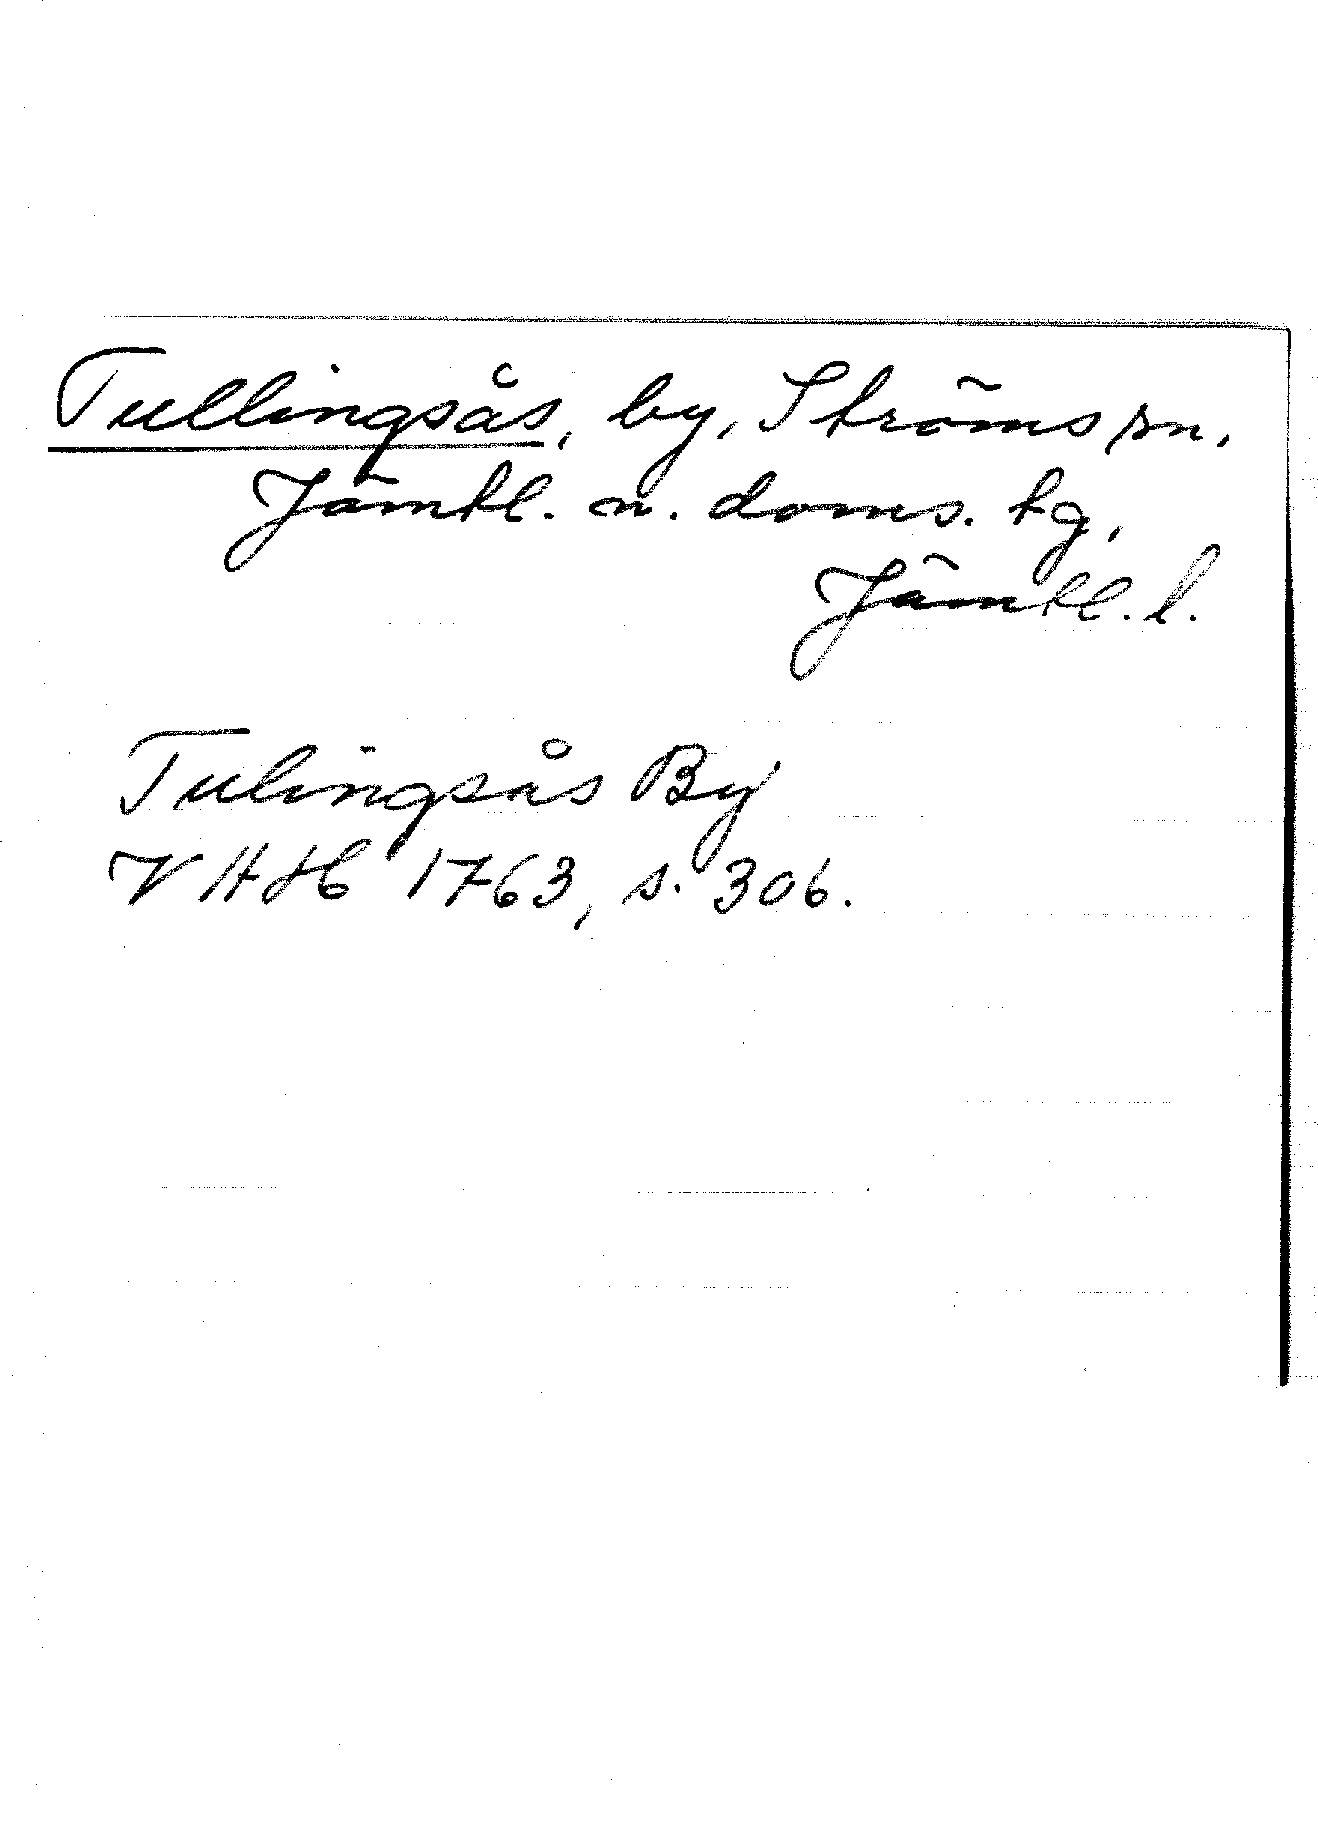 Tullingsås, by, Ströms sn.
Jämtl. n. doms. tg,
Jämtl. l.
Tulingsås By
VHAH 1763, s. 306.